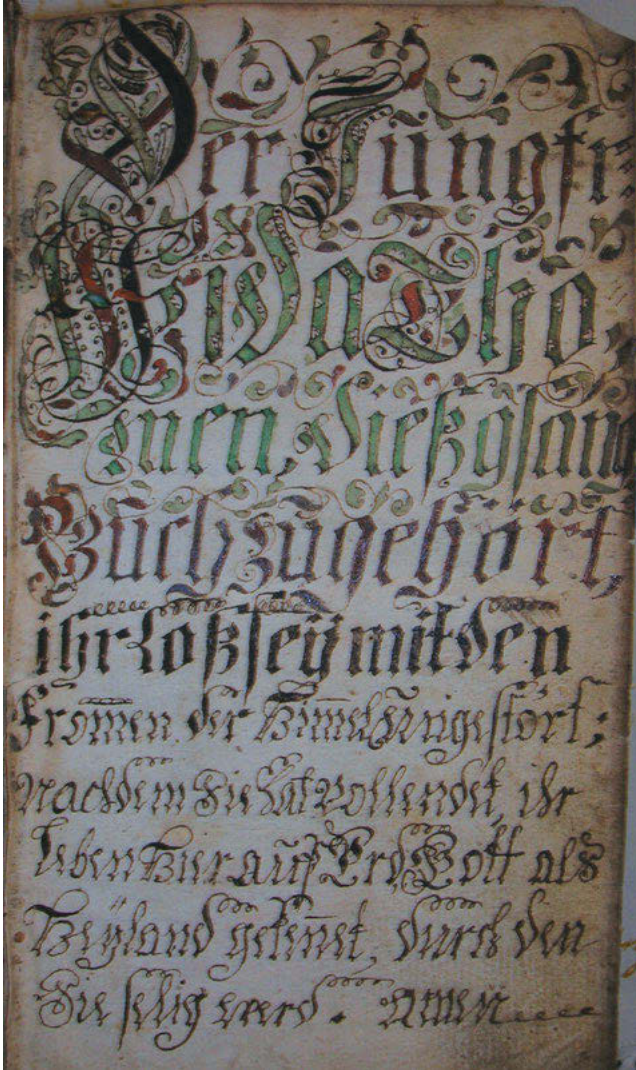 Der Jüngfr
Ewa Tho,
nen, Dieß gsang
Buch zugehört,
ihr Loß seÿ mit den
From̅en der Him̅el Ungestört;
Nachdem Sie hat Vollendet, ihr
leben hier auf Erd, Gott als
Heÿland geken̅et, durch den
Sie selig werd. Amen